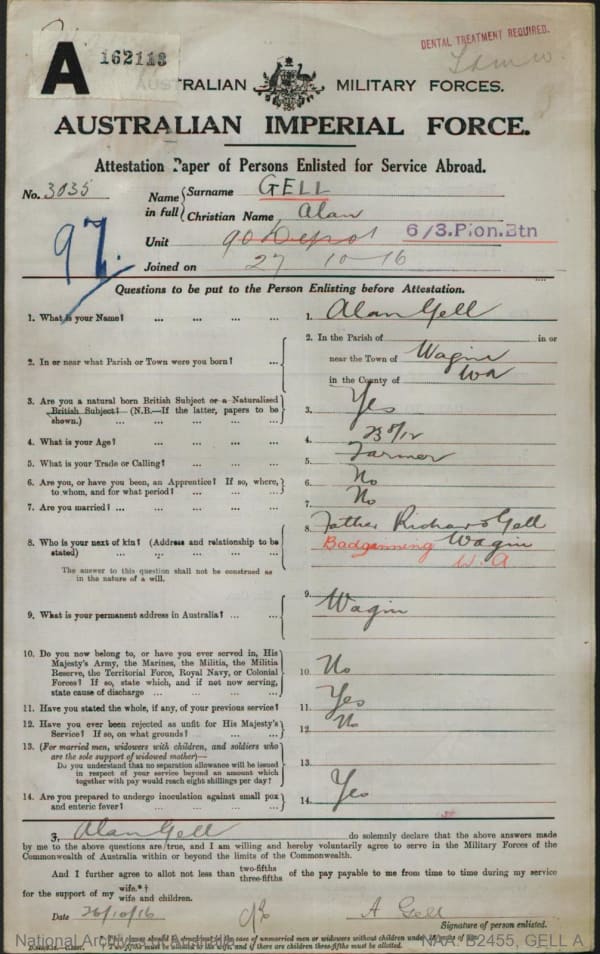 A 162113
DENTAL TREATMENT REQUIRED.
AUSTRALIAN MILITARY FORCES.
AUSTRALIAN IMPERIAL FORCE.
Attestation Paper of Persons Enlisted for Service Abroad.
No. 3035
Name in full { Surname GELL
Christian Name Alan
Unit 90 Depot 6/3.Pion.Btn
97.
Joined on 27 10-16
Questions to be put to the Person Enlisting before Attestation.
1. What is your Name? ... ... ... ... 1. Alan Gell
2. In or near what Parish or Town were you born? ...
2. In the Parish of in or
near the Town of Wagin
in the County of WA
3. Are you a natural born British Subject or a Naturalised
British Subject? (N.B.—If the latter, papers to be
shown.) ... ... ... ... 3. Yes
4. What is your Age? ... ... ... 4. 23 8/12
5. What is your Trade or Calling? ... ... ... 5. Farmer
6. Are you, or have you been, an Apprentice? If so, where,
to whom, and for what period? ... ... ... 6. No
7. Are you married? ... ... ... ... 7. No
8. Who is your next of kin? (Address and relationship to be
stated) ... ... ... ...
8. Father Richard Gell
Badganning Wagin
W.A
The answer to this question shall not be construed as
in the nature of a will.
9. What is your permanent address in Australia? ... ... 9. Wagin
10. Do you now belong to, or have you ever served in, His
Majesty's Army, the Marines, the Militia, the Militia
Reserve, the Territorial Force, Royal Navy, or Colonial
Forces? If so, state which, and if not now serving,
state cause of discharge ... ... ... 10. No
11. Have you stated the whole, if any, of your previous service? 11. Yes
12. Have you ever been rejected as unfit for His Majesty's
Service? If so, on what grounds? ... ... 12. No
13. (For married men, widowers with children, and soldiers who
are the sole support of widowed mother)—
Do you understand that no separation allowance will be issued
in respect of your service beyond an amount which
together with pay would reach eight shillings per day? 13.
14. Are you prepared to undergo inoculation against small pox
and enteric fever? ... ... ... ... 14. Yes
I, Alan Gell do solemnly declare that the above answers made
by me to the above questions are true, and I am willing and hereby voluntarily agree to serve in the Military Forces of the
Commonwealth of Australia within or beyond the limits of the Commonwealth.
And I further agree to allot not less than two-fifths three-fifths of the pay payable to me from time to time during my service
for the support of my wife.*† wife and children.
Date 26/10/16 A Gell
Signature of person enlisted.
* This clause should be struck out in the case of unmarried men or widowers without children under 18 years of age.
† Two-fifths must be allotted to the wife, and if there are children three-fifths must be allotted.
National Archives of Australia NAA: B2455, GELL A